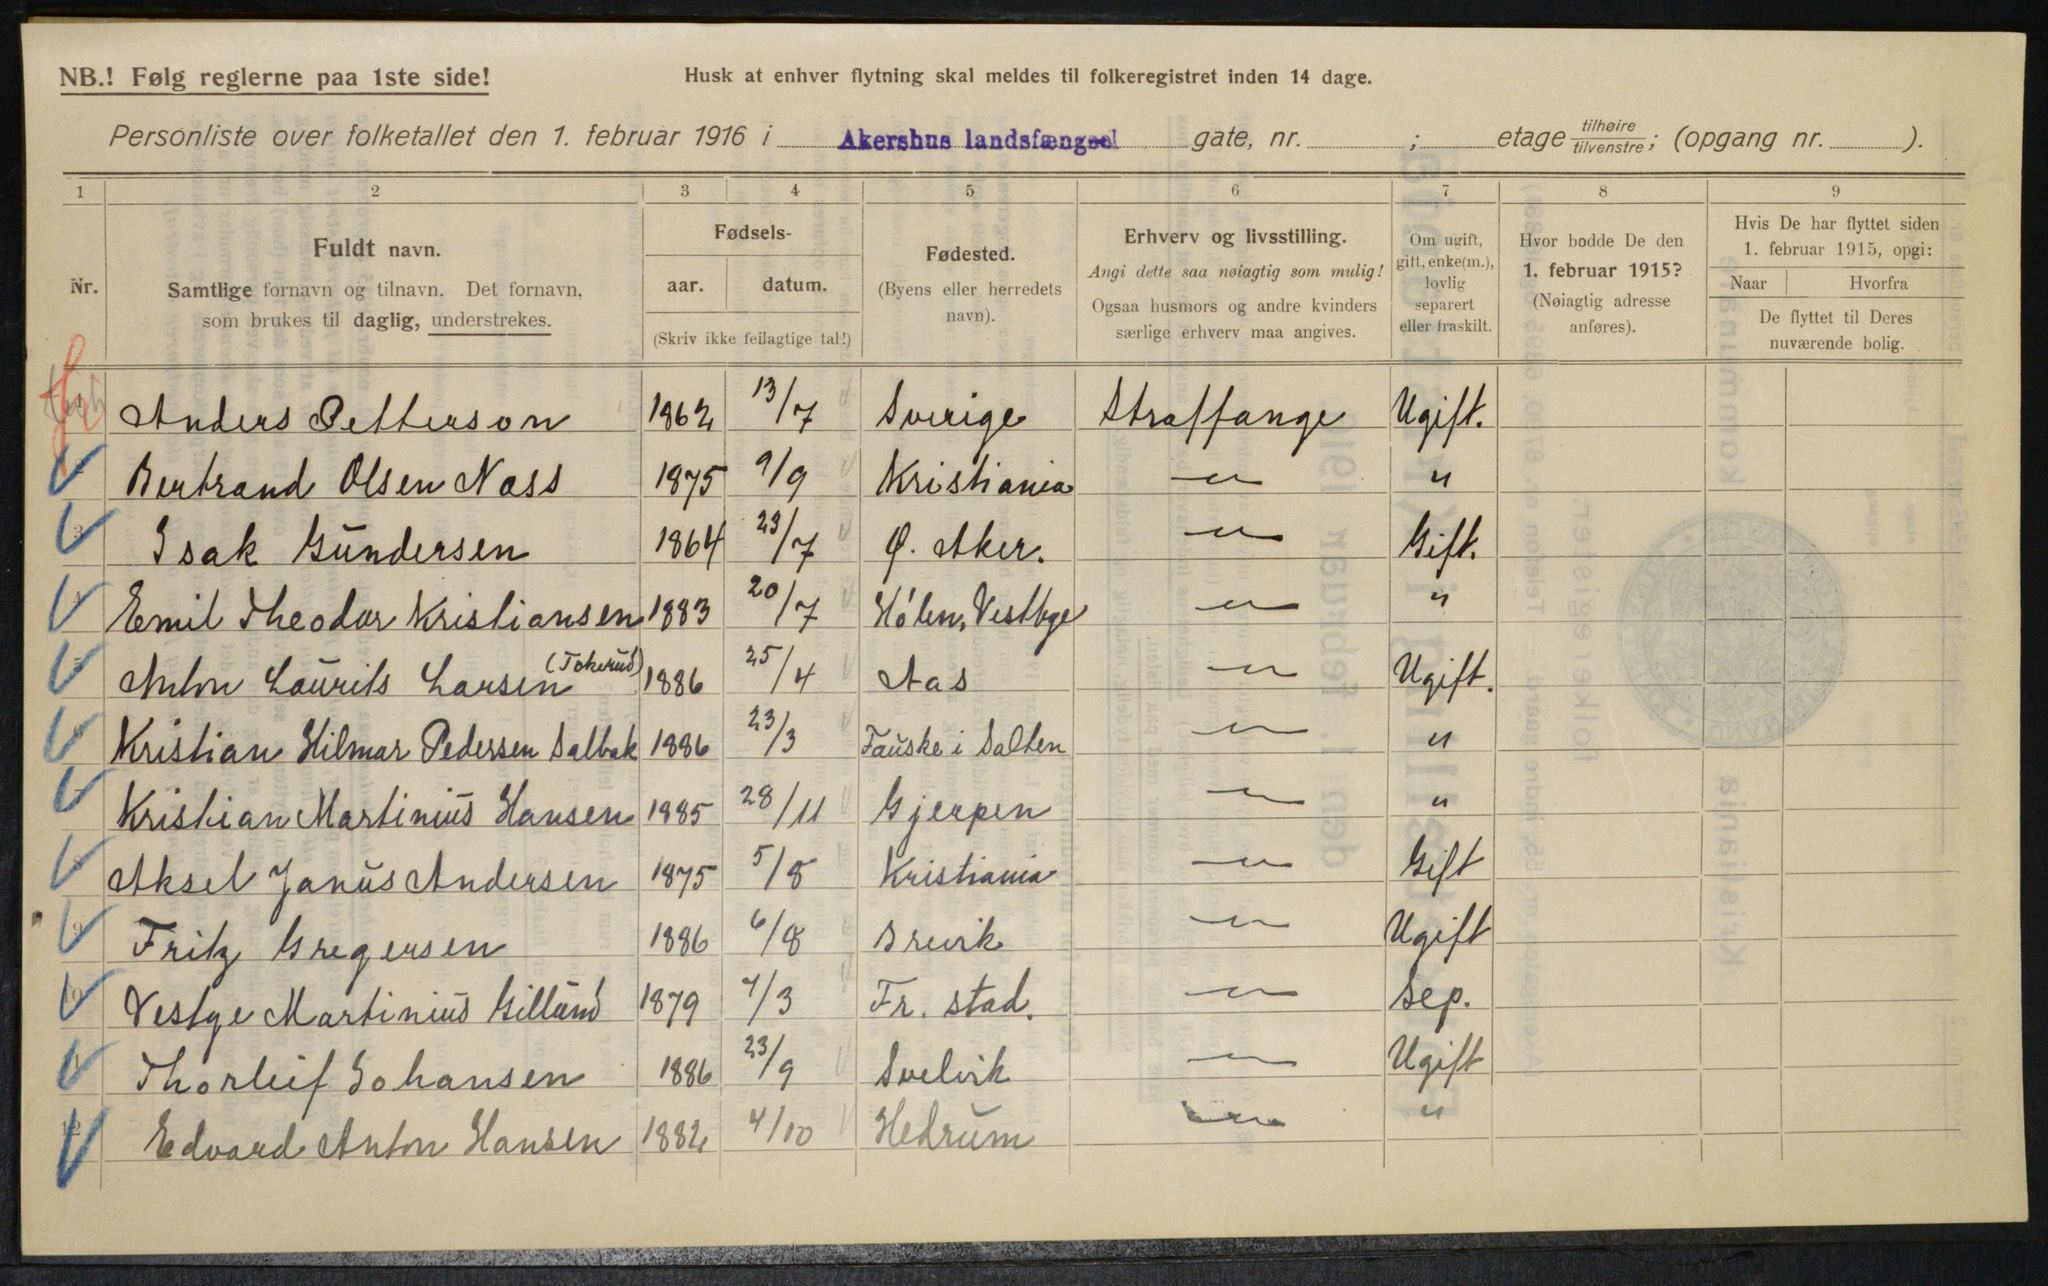 NB.! Følg reglerne paa 1ste side!
Husk at enhver flytning skal meldes til folkeregistret inden 14 dage.
Personliste over folketallet den 1. februar 1916 i Akershus landsfængsel gate, nr. ; etage tilhøire tilvenstre; (opgang nr. ).
1 2 3 4 5 6 7 8 9
Nr.
Fuldt navn.
Samtlige fornavn og tilnavn. Det fornavn,
som brukes til daglig, understrekes.
Fødsels-
aar. datum.
(Skriv ikke feilagtige tal!)
Fødested.
(Byens eller herredets
navn).
Erhverv og livsstilling.
Angi dette saa nøiagtig som mulig!
Ogsaa husmors og andre kvinders
særlige erhverv maa angives.
Om ugift,
gift, enke(m.),
lovlig
separert
eller fraskilt.
Hvor bodde De den
1. februar 1915?
(Nøiagtig adresse
anføres).
Hvis De har flyttet siden
1. februar 1915, opgi:
Naar Hvorfra
De flyttet til Deres
nuværende bolig.
Anders Petterson 1862 13/7 Sverige Straffange Ugift.
2 Bertrand Olsen Nass 1875 9/9 Kristiania — " — "
3 Isak Gundersen 1864 23/7 Ø. Aker. — " — Gift.
4 Emil Theodor Kristiansen 1883 20/7 Hølen, Vestbye — " — "
5 Anton Laurits Larsen (Tokerud) 1886 25/4 Aas — " — Ugift.
6 Kristian Hilmar Pedersen Salbak 1886 23/3 Fauske i Salten — " — "
7 Kristian Martinius Hansen 1885 28/11 Gjerpen — " — "
8 Aksel Janus Andersen 1875 5/8 Kristiania — " — Gift
9 Fritz Gregersen 1886 6/8 Brevik — " — Ugift
10 Vestye Martinius Gillund 1879 7/3 Fr. stad. — " — Sep.
11 Thorleif Johansen 1886 23/9 Svelvik — " — Ugift
12 Edvard Anton Hansen 1882 4/10 Hedrum — " — "